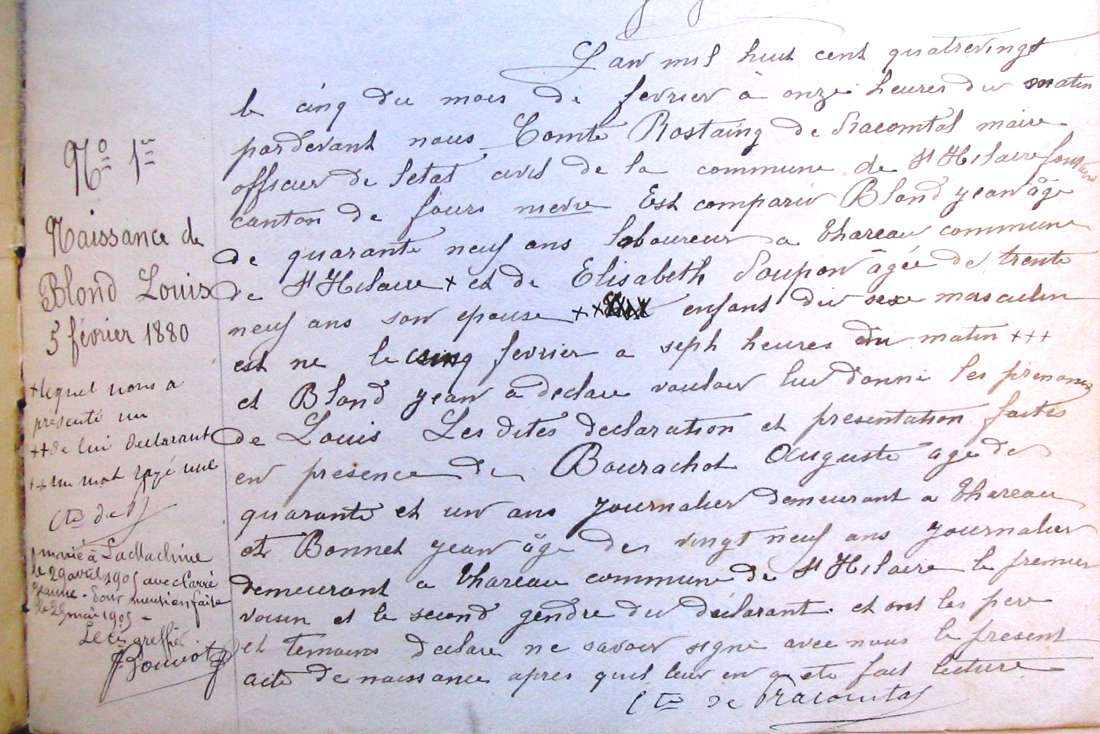 Nº 1er
Naissance de
Blond Louis
5 février 1880
+ lequel nous a
présenté un
++ de lui déclarant
++ un mot rayé nul
Cte de
marié à La Machine
le 29 avril 1905 avec Carré
Jeanne. Pour mention faite
le 28 mai 1905
Le Cis greffier
L'an mil huit cent quatrevingt
le cinq du mois de fevrier à onze heures du matin
pardevant nous Comte Rostaing de Pracomtal maire
officier de letat civil de la commune de St Hilaire fontaine
canton de fours nievre Est comparu Blond jean âgé
de quarante neuf ans laboureur a thareau commune
de St Hilaire + et de Elisabeth Soupon âgée de trente
neuf ans son epouse ++ enfant du sexe masculin
est ne le cinq fevrier a seph heures du matin +++
et Blond jean a declare vouloir lui donné les prenoms
de Louis Les dites declaration et presentation faites
en presence de Bourachot Auguste âgé de
quarante et un ans journalier demeurant a thareau
et Bonnet jean âgé de vingt neuf ans journalier
demeurant a thareau commune de St Hilaire le premier
voisin et le second gendre du déclarant. et ont les pere
et temoins declare ne savoir signé avec nous le present
acte de naissance apres quil leur en a ete fait lecture
Cte de Pracomtal